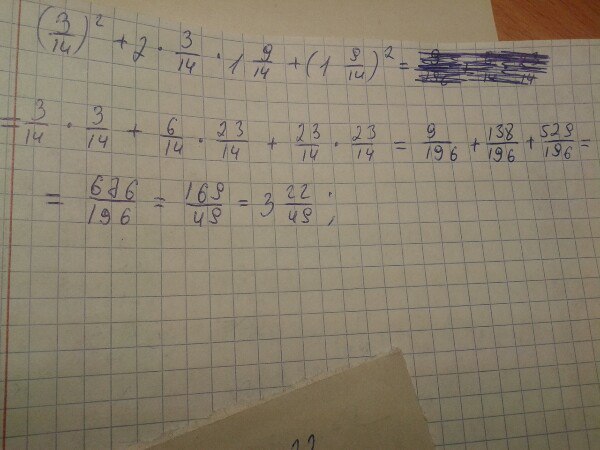 (3/14)² + 2 · 3/14 · 1 9/14 + (1 9/14)² =
= 3/14 · 3/14 + 6/14 · 23/14 + 23/14 · 23/14 = 9/196 + 138/196 + 529/196 =
= 676/196 = 169/49 = 3 22/49 ;